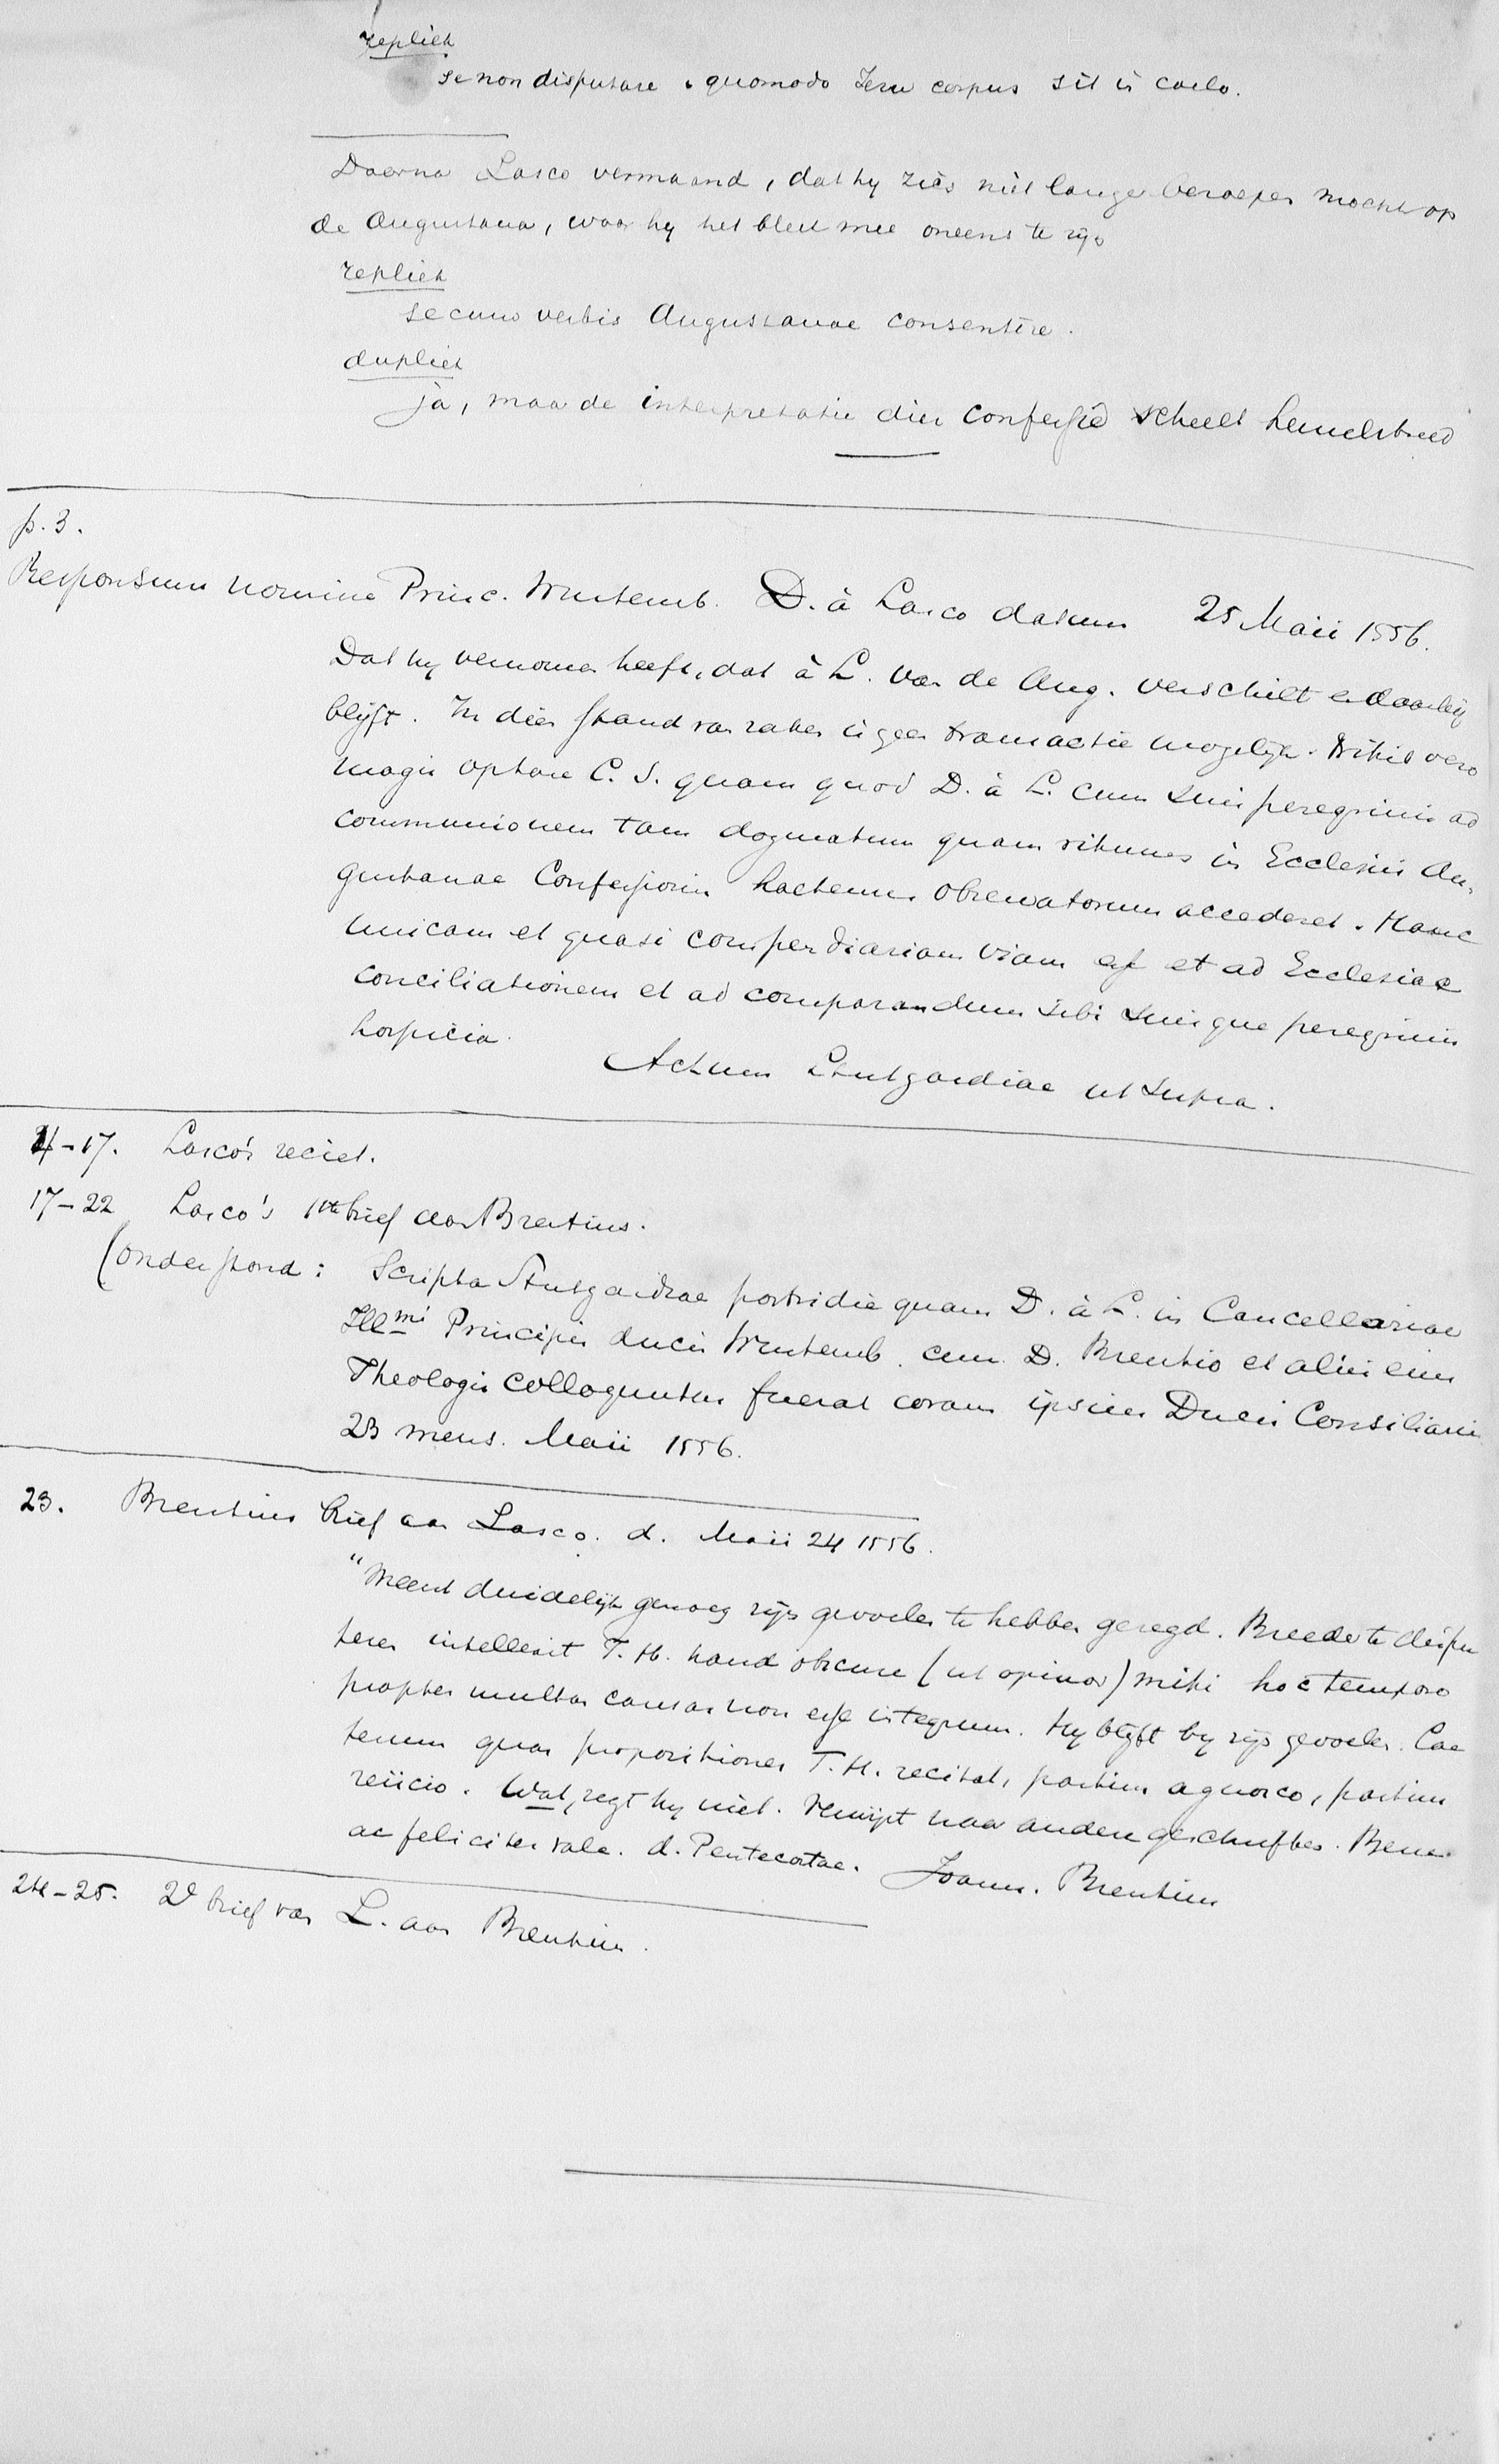 repliek
se non disputare, quomodo Jesu corpus sit in coelo.
Daarna Lasco vermaand, dat hy zich niet langer beroepen mocht op
de Augustana, waar hy het bleek mee oneens te zijn
repliek
se cum verbis Augustanae consentire.
dupliek
ja, maar de interpretatie dier confessie scheelt hemelsbreed
p. 3.
Responsum nomine Princ. Wurtemb. D. à Lasco datum 25 Maii 1556.
Dat hy vernomen heeft, dat à L. van de Aug. verschilt en daarbij
blijft. In dien stand van zaken is geen transactie mogelijk. Nihil vero
magis optare C. S. quam quod D. à L. cum suis peregrinis ad
communionem tam dogmatum quam rituum in Ecclesiis Au-
gustanae Confessionis hactenus observatorum accederet. Hanc
unicam et quasi compendiariam viam esse et ad Ecclesiae
conciliationem et ad comparandum sibi suisque peregrinis
hospicia.
Actum Stutgardiae ut supra.
4-17. Lasco's reciet.
17-22 Lasco's 1ste brief aan Brentius.
(onder stond: Scripta Stutgardiae postridie quam D. à L. in Cancellariae
Illmi Principis ducis Wurtemb. cum D. Brentio et aliis eius
Theologis colloquutus fuerat coram ipsius Ducis Consiliariis
23 mens. Maii 1556.
23. Brentius brief aan Lasco. d. Maii 24 1556.
"Meent duidelijk genoeg zijn gevoelen te hebben gezegd. Breeder te dispu
teren intellexit T. H. haud obscure (ut opinor) mihi hoc tempore
propter multas causas non esse integrum. Hy blijft by zijn gevoelen. Cae
terum quas propositiones T. H. recitat, partim agnosco, partim
reiicio. Wat, zegt hy niet. Verwijst naar andere geschriften. Bene
ac feliciter vale. d. Pentecostae. Joann. Brentius
24-25. 2e brief van L. aan Brentius.